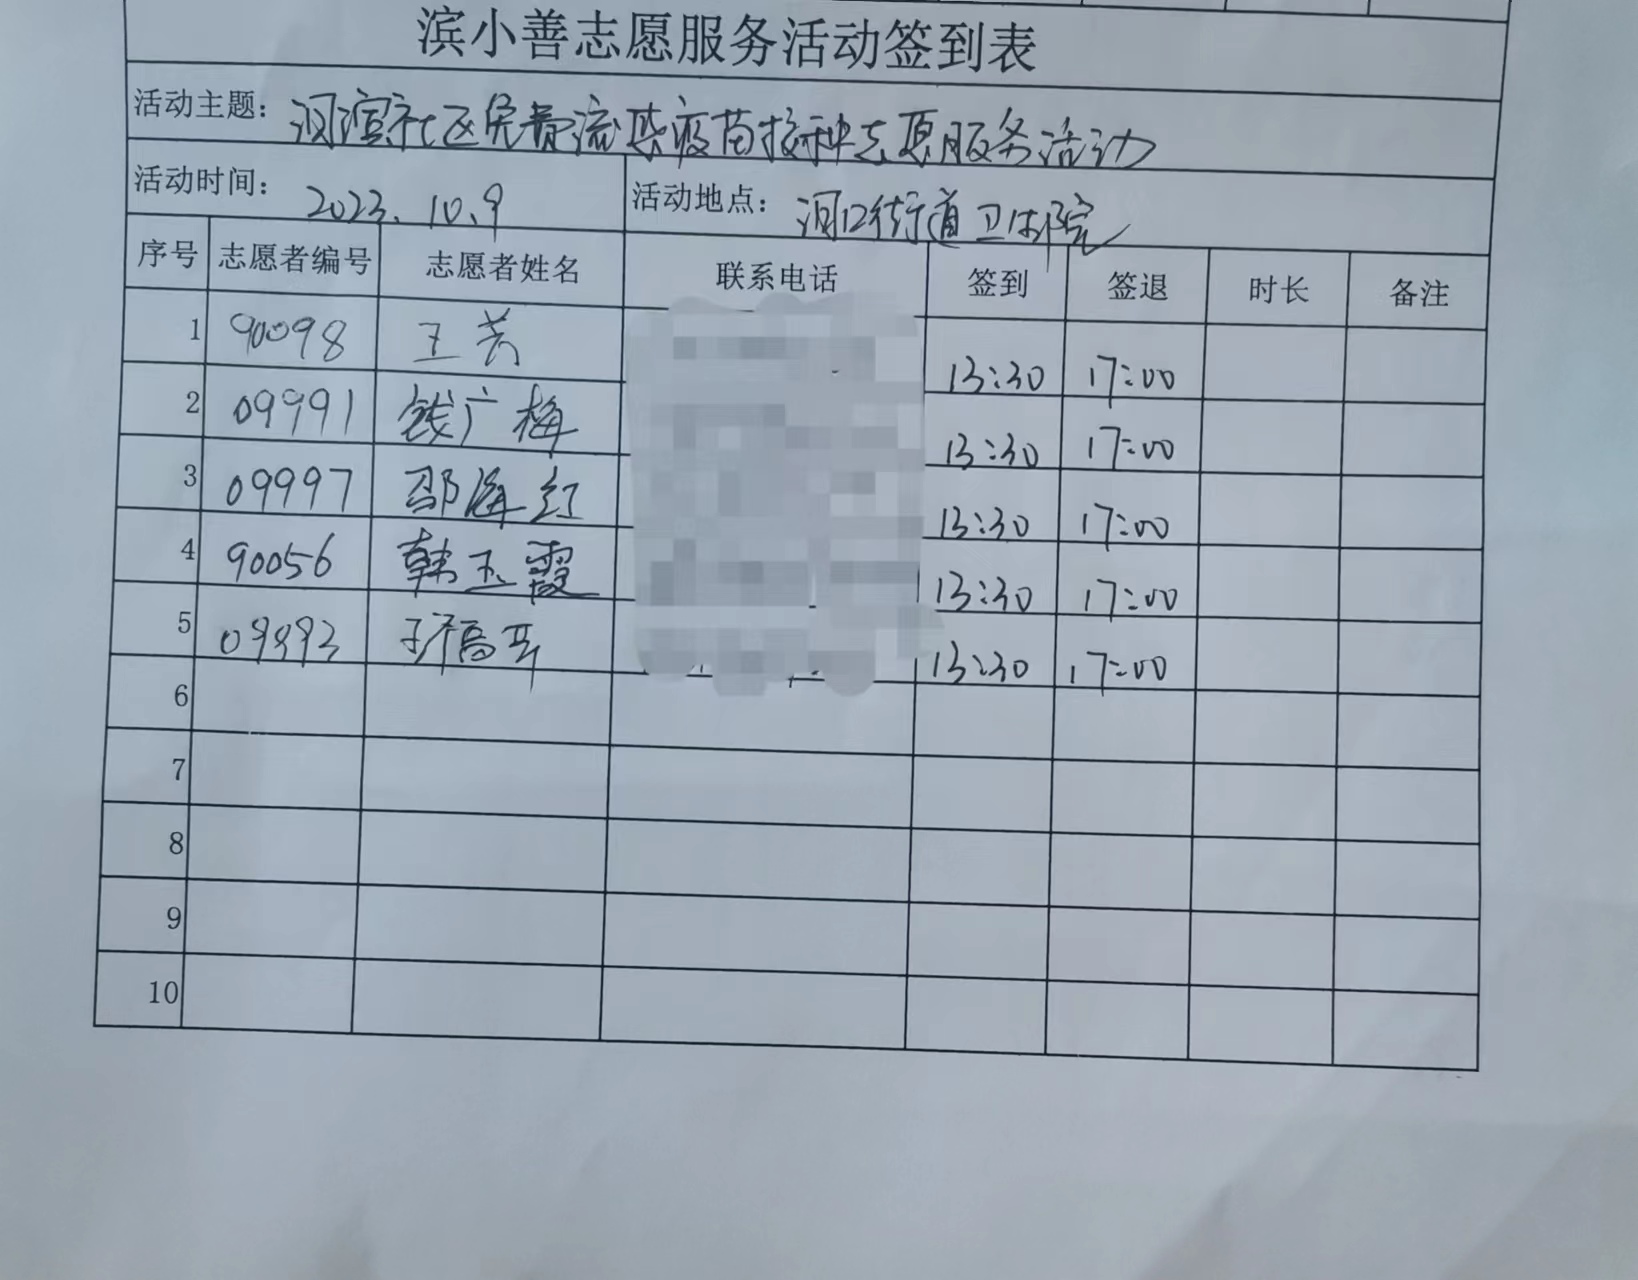 滨小善志愿服务活动签到表
活动主题: 泗滨社区免费流感疫苗接种志愿服务活动
活动时间: 2023.10.9 活动地点: 泗口街道卫生院
序号 志愿者编号 志愿者姓名 联系电话 签到 签退 时长 备注
1 90098 王芳 13:30 17:00
2 09991 钱广梅 13:30 17:00
3 09997 邵海红 13:30 17:00
4 90056 韩玉霞 13:30 17:00
5 13:30 17:00
6
7
8
9
10